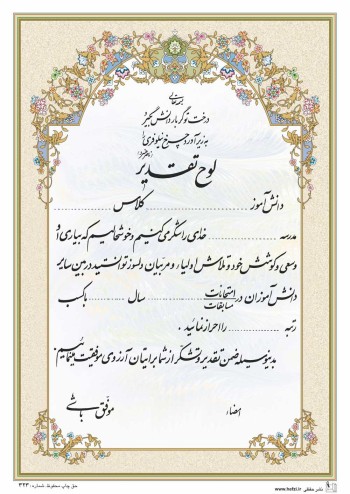 بسمه تعالی
درخت تو گر بار دانش بگیرد
به زیر آوری چرخ نیلوفری را
لوح تقدیر
دانش آموز .................... کلاس ....................
مدرسه .................... خدای را شکر می کنیم و خوشحالیم که بیاری او
وسعی و کوشش خود و تلاش اولیاء و مربیان دلسوز توانستید در بین سایر
دانش آموزان در امتحانات مسابقات .......... سال .......... با کسب
رتبه .................... را احراز نمائید .
بدینوسیله ضمن تقدیر و تشکر از شما برایتان آرزوی موفقیت می نمائیم.
امضاء
موفق باشی
نشر حافظی www.hafzi.ir
حق چاپ محفوظ شماره: ۳۲۳